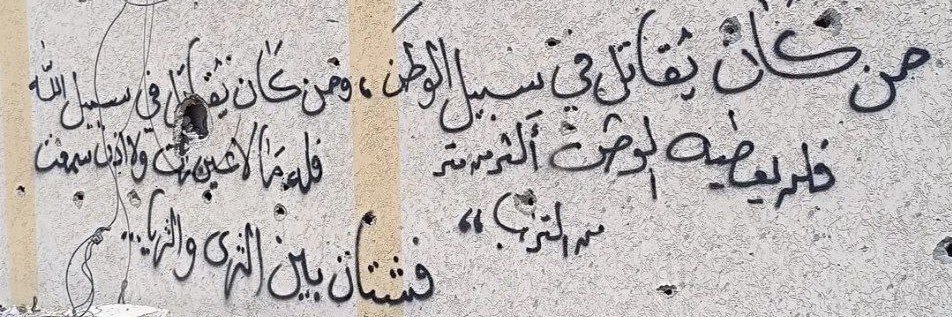 من كَان يُقاتل في سبيل الوطن، ومن كَان يُقاتَل في سبيل الله
فلن يعطيه الوطن أكثر من متر
من التراب “
فله مَا لا عين رأت ولا اذن سمعت
فشتان بين الثرى والثريا...